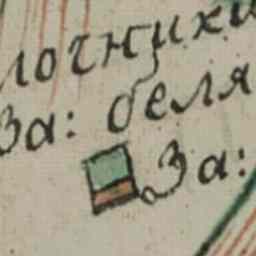 лочники
За: беля
За: